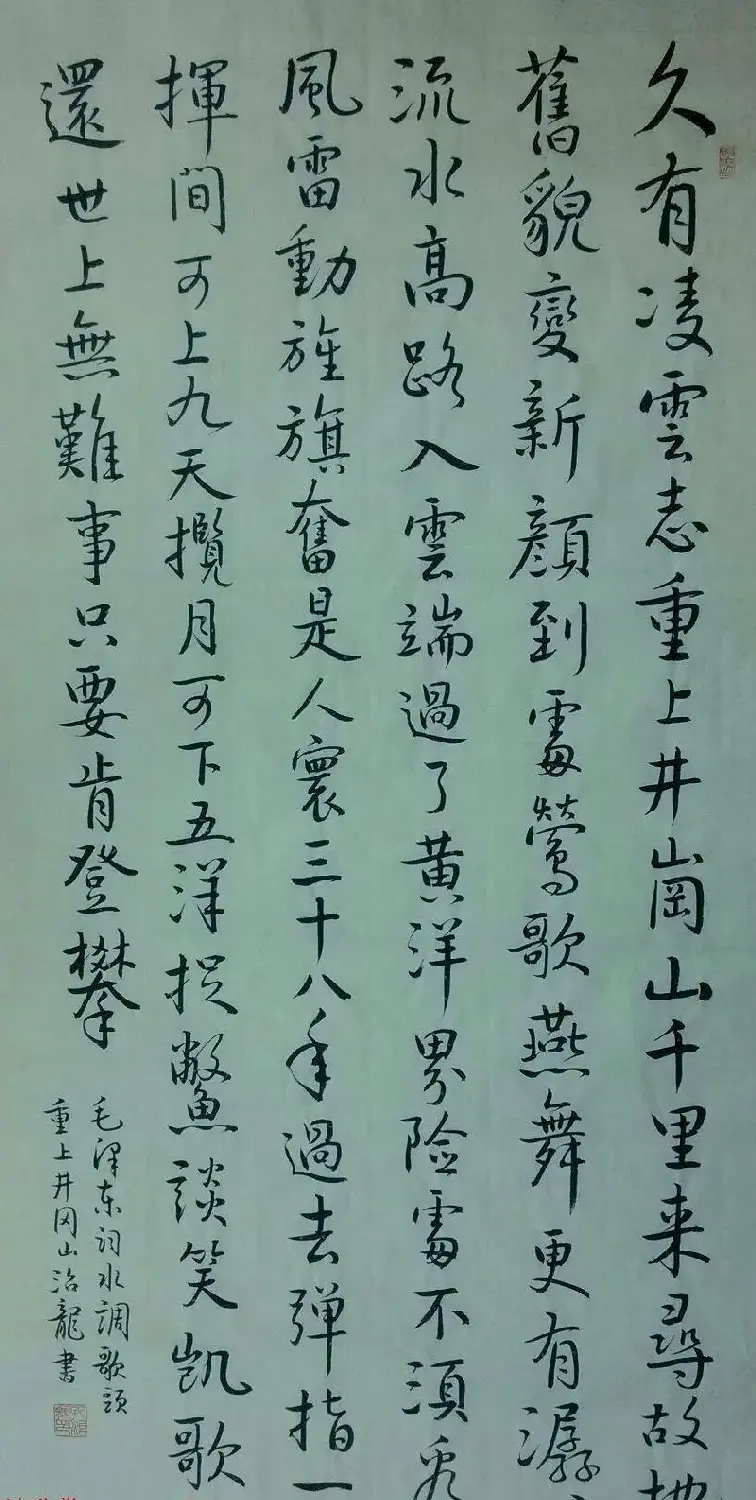 久有凌雲志重上井崗山千里来尋故地
舊貌變新顔到處鶯歌燕舞更有潺
流水高路入雲端過了黄洋界險處不須看
風雷動旌旗奮是人寰三十八年過去弹指一
揮間可上九天攬月可下五洋捉鱉談笑凱歌
還世上無難事只要肯登攀
毛澤东词水調歌頭
重上井冈山治龍書